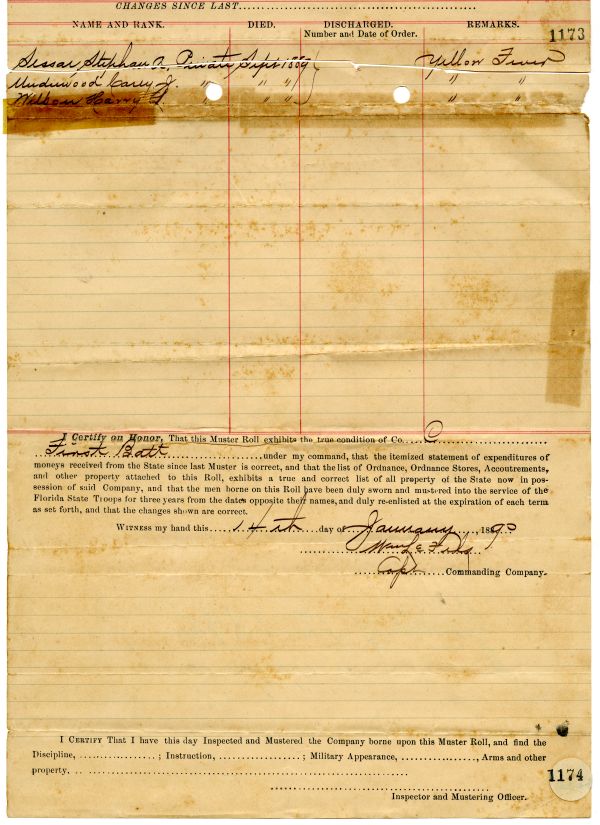 CHANGES SINCE LAST
NAME AND RANK. DIED. DISCHARGED. REMARKS.
Number and Date of Order.
1173
Stephen Private Sept 1889 Yellow Fever
Underwood Carey J. " " " " "
Harry " " " " "
I Certify on Honor, That this Muster Roll exhibits the true condition of Co. C
First Batt, under my command, that the itemized statement of expenditures of
moneys received from the State since last Muster is correct, and that the list of Ordnance, Ordnance Stores, Accoutrements,
and other property attached to this Roll, exhibits a true and correct list of all property of the State now in pos-
session of said Company, and that the men borne on this Roll have been duly sworn and mustered into the service of the
Florida State Troops for three years from the dates opposite their names, and duly re-enlisted at the expiration of each term
as set forth, and that the changes shown are correct.
WITNESS my hand this 14th day of January, 1890
Capt Commanding Company.
I CERTIFY That I have this day Inspected and Mustered the Company borne upon this Muster Roll, and find the
Discipline, ; Instruction, ; Military Appearance, , Arms and other
property.
1174
Inspector and Mustering Officer.